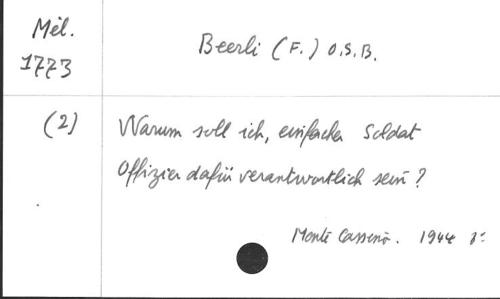 Mél.
1773
Beerli (F.) O.S.B.
(2)
Warum soll ich, einfacher Soldat
Offizier dafür verantwortlich sein?
Monte Cassino. 1944 8°